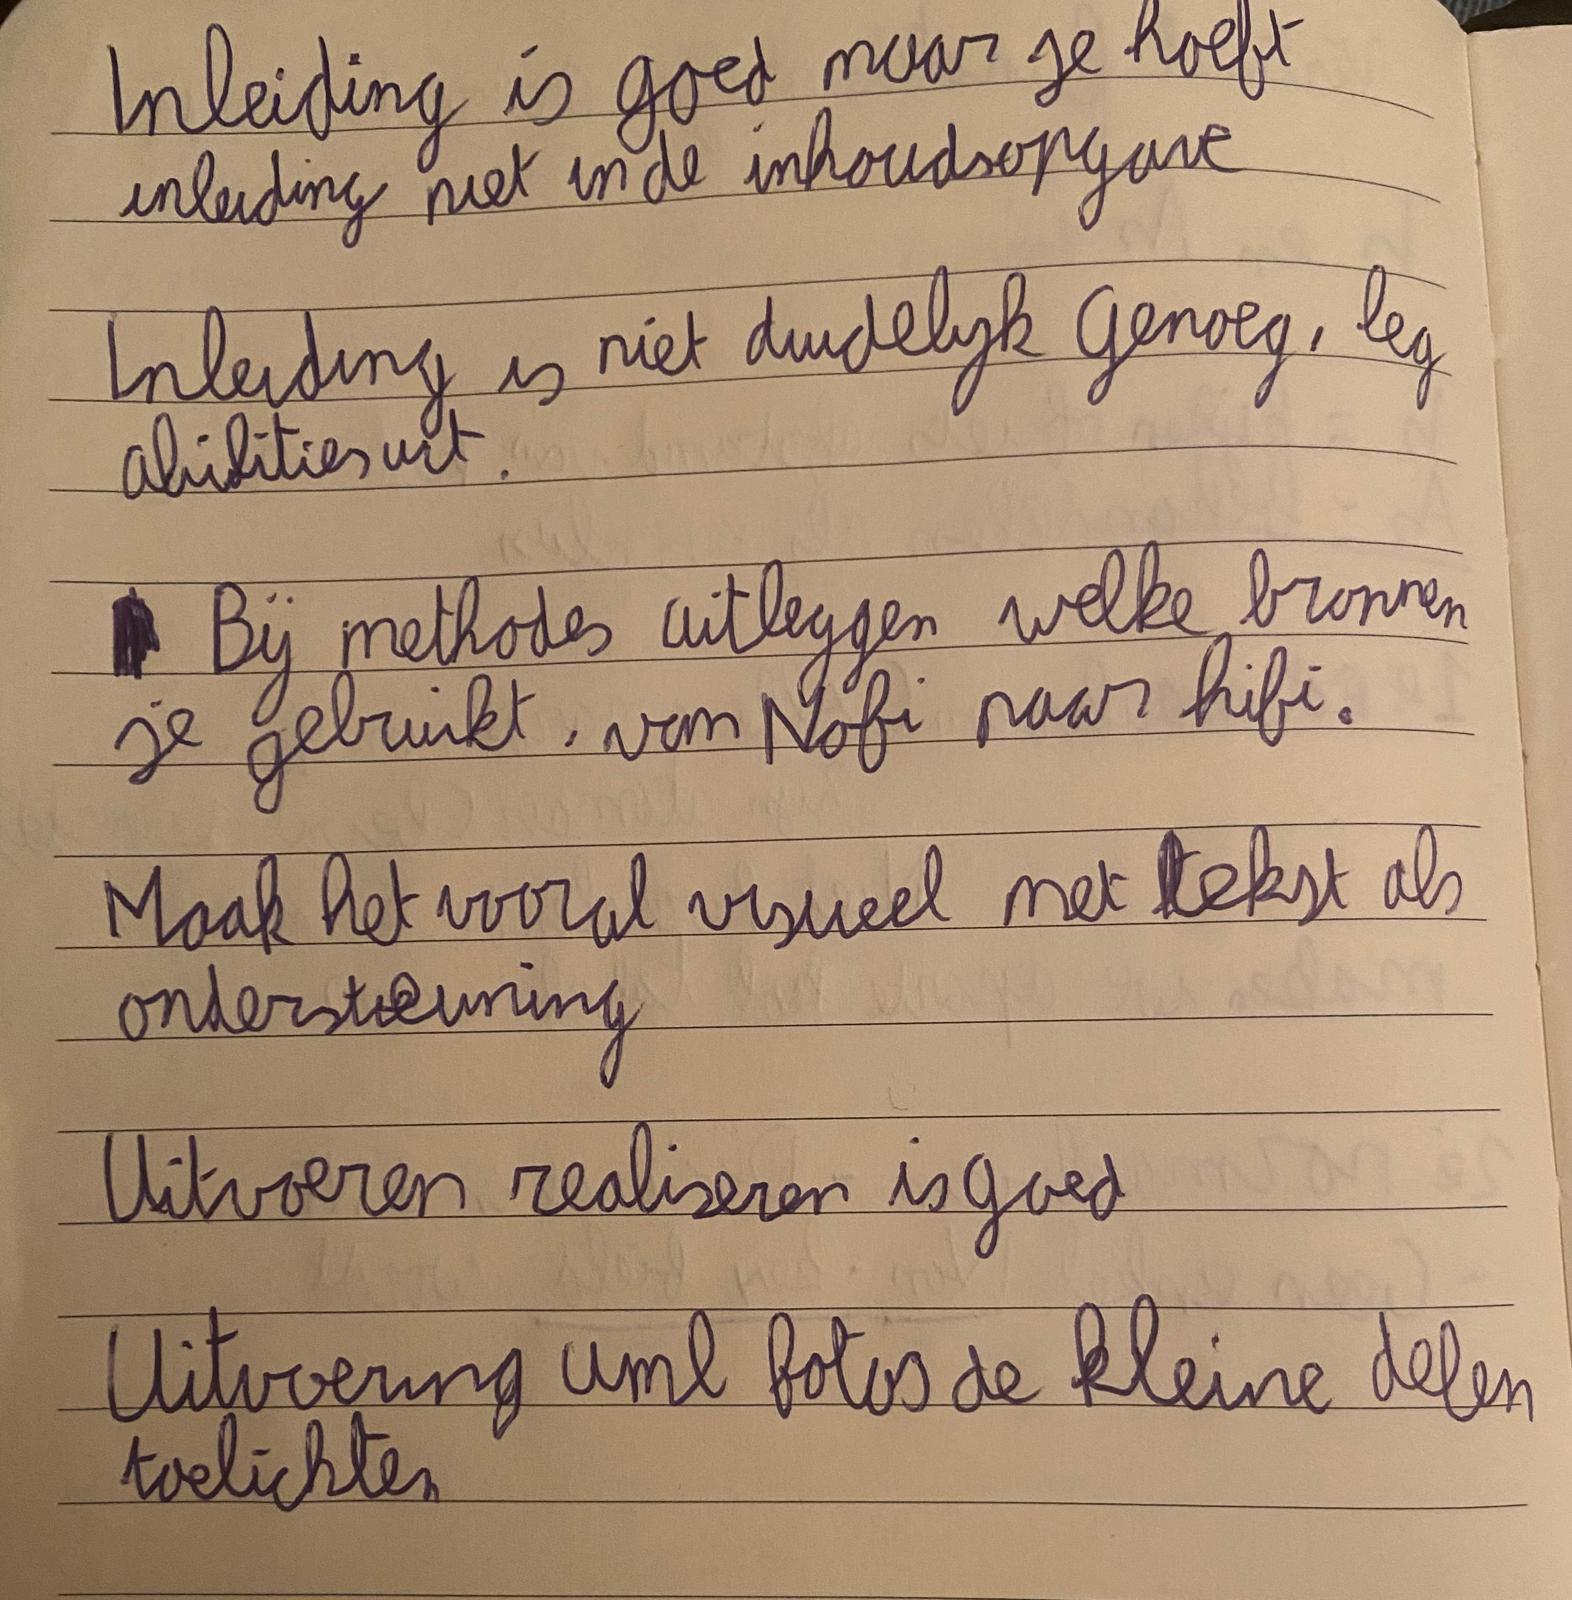 Inleiding is goed maar je hoeft
inleiding niet in de inhoudsopgave
Inleiding is niet duidelyk genoeg, leg
abilities uit.
Bij methodes uitleggen welke bronnen
je gebruikt, van Nofi naar hifi.
Maak het vooral visueel met tekst als
ondersteuning
Uitvoeren realiseren is goed
Uitvoering uml fotos de kleine delen
toelichten